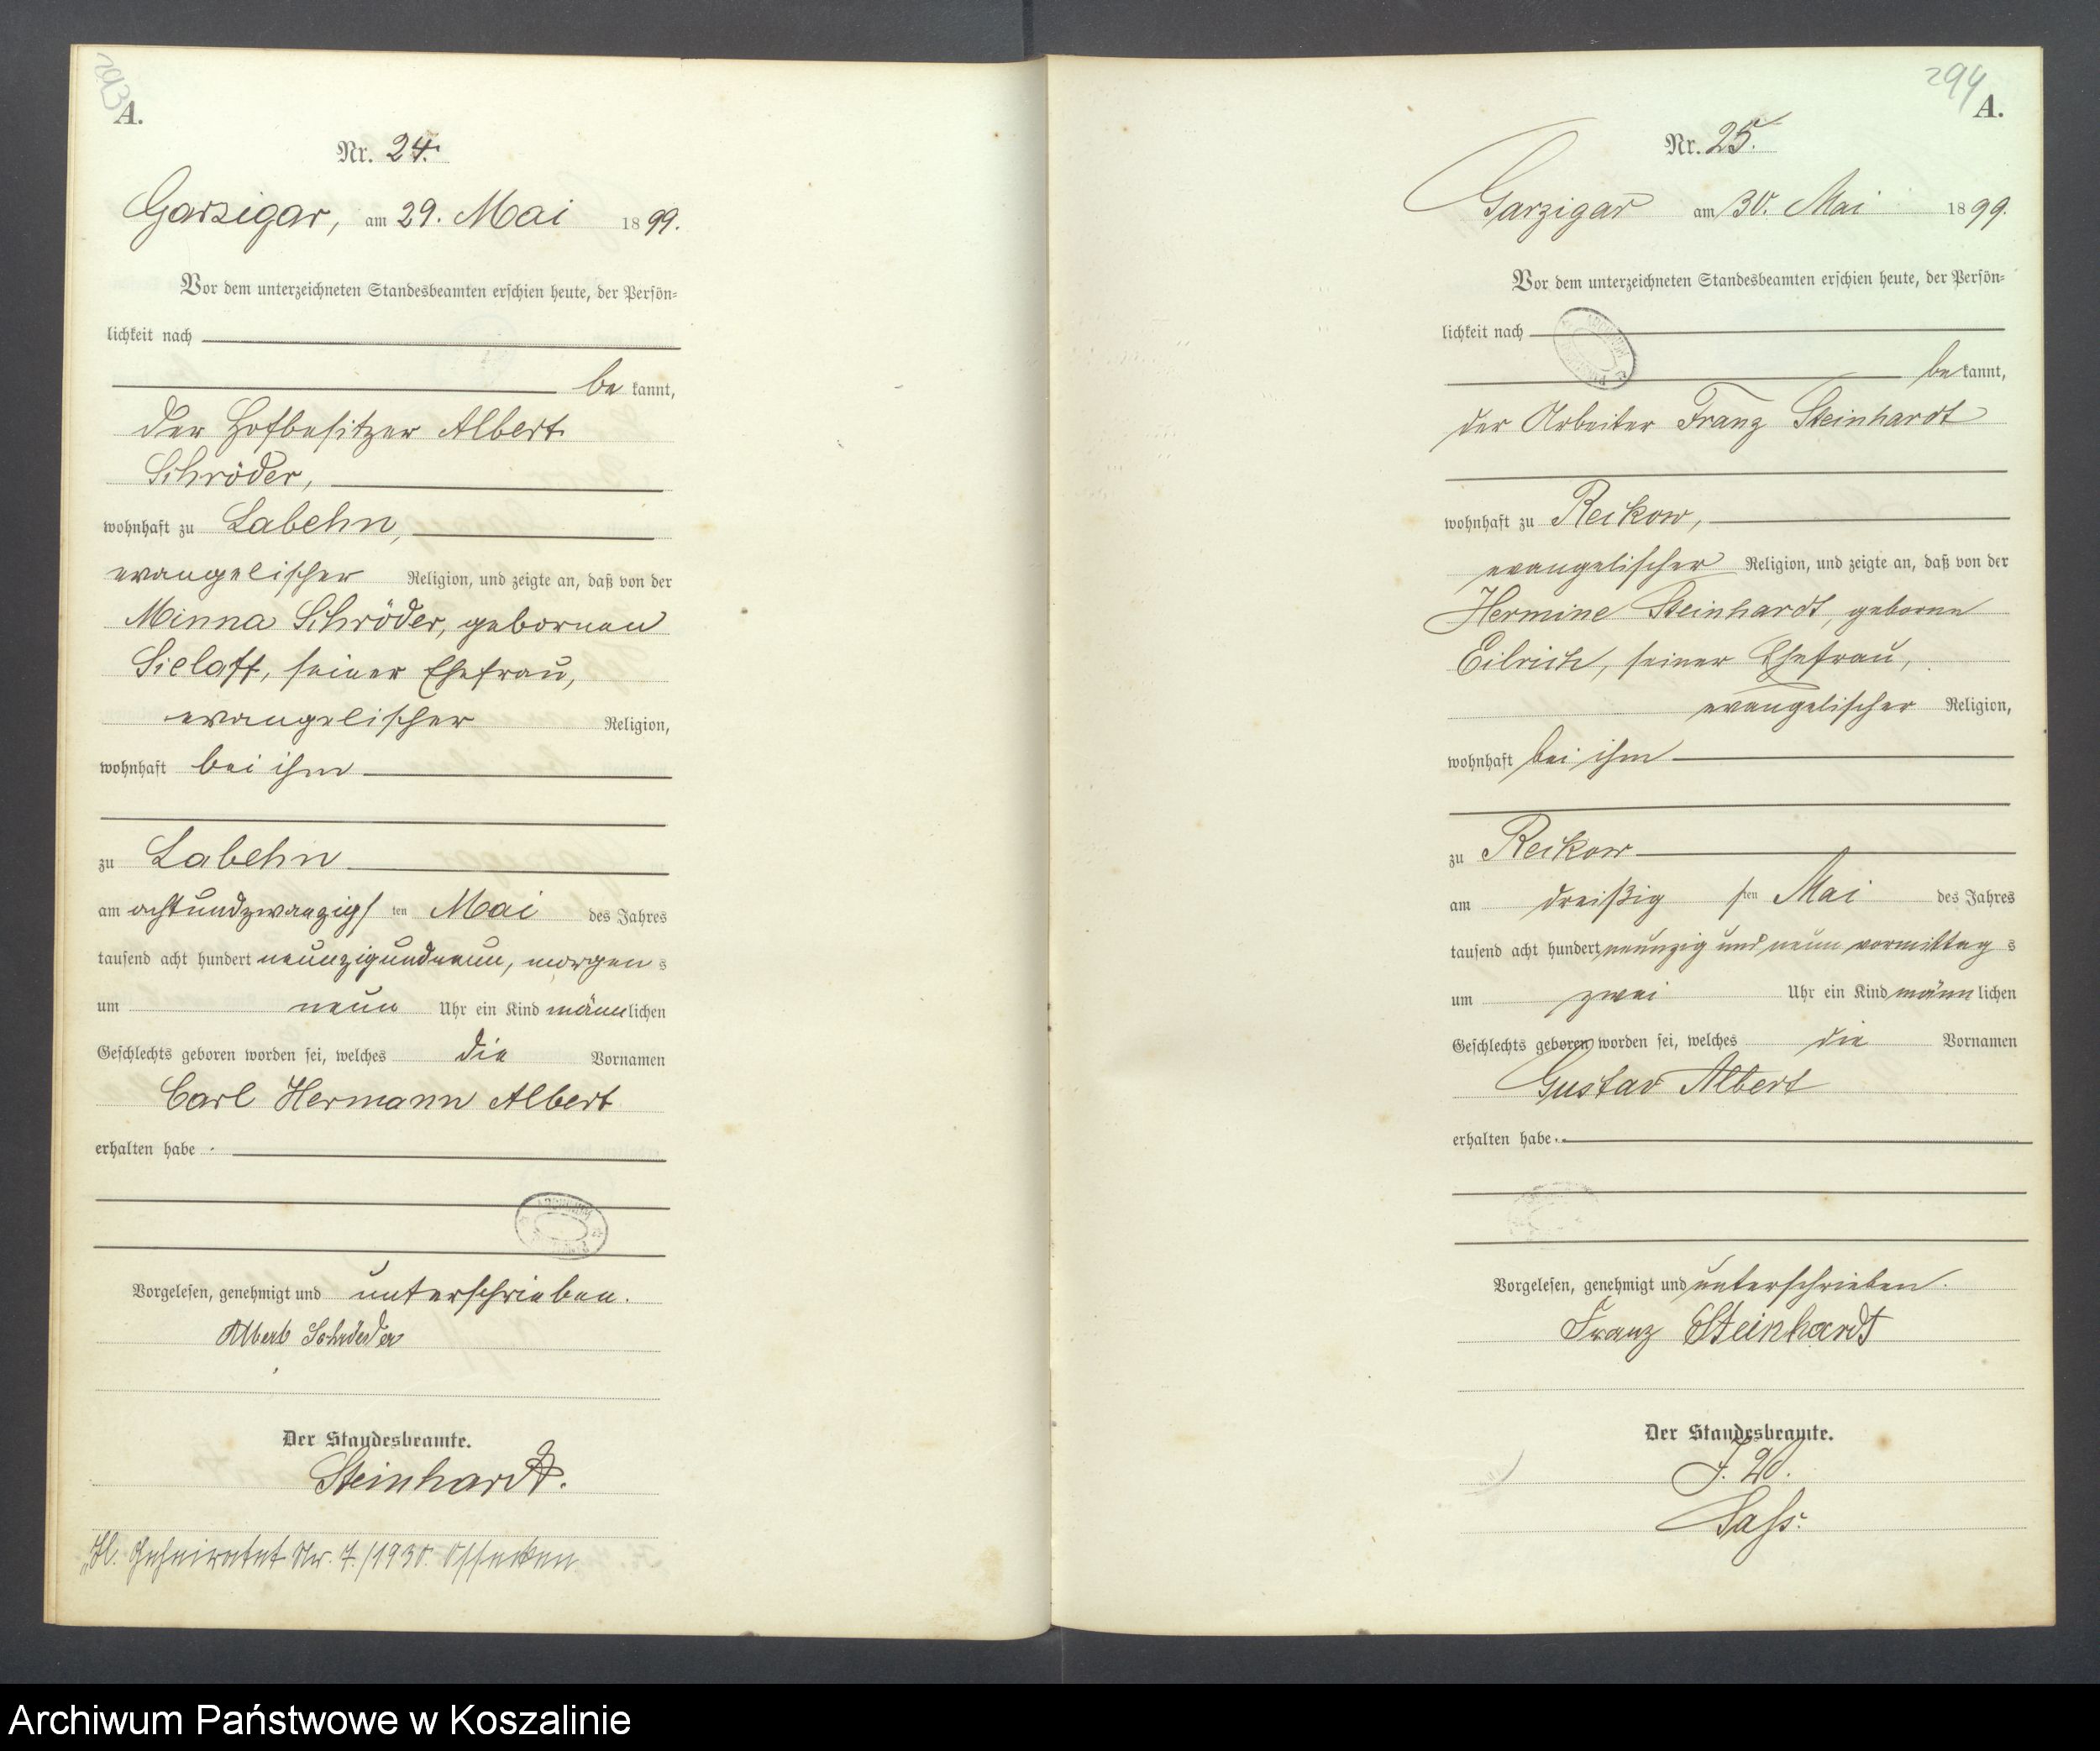 293
A.
Nr. 24.
Garzigar, am 29. Mai 1899.
Vor dem unterzeichneten Standesbeamten erschien heute, der Persön-
lichkeit nach
be kannt,
der Hofbesitzer Albert
Schröder,
wohnhaft zu Labehn,
evangelischer Religion, und zeigte an, daß von der
Minna Schröder, gebornen
Sielaff, seiner Ehefrau,
evangelischer Religion,
wohnhaft bei ihm
zu Labehn
am achtundzwanzigs ten Mai des Jahres
tausend acht hundert neunzigundneun, morgen s
um neun Uhr ein Kind männlichen
Geschlechts geboren worden sei, welches die Vornamen
Carl Hermann Albert
erhalten habe.
ARCHIWUM
Vorgelesen, genehmigt und unterschrieben.
Albert Schröder
Der Standesbeamte.
Steinhardt.
Geheiratet Nr. 7./1930. Ossecken
294
A.
Nr. 25.
Garzigar am 30. Mai 1899.
Vor dem unterzeichneten Standesbeamten erschien heute, der Persön-
lichkeit nach
ARCHIWUM
be kannt,
der Arbeiter Franz Steinhardt
wohnhaft zu Reckow,
evangelischer Religion, und zeigte an, daß von der
Hermine Steinhardt, geborne
Eilrich, seiner Ehefrau,
evangelischer Religion,
wohnhaft bei ihm
zu Reckow
am dreißig sten Mai des Jahres
tausend acht hundert neunzig und neun vormittag s
um zwei Uhr ein Kind männlichen
Geschlechts geboren worden sei, welches die Vornamen
Gustav Albert
erhalten habe.
Vorgelesen, genehmigt und unterschrieben.
Franz Steinhardt
Der Standesbeamte.
J. V.
Sass.
Archiwum Państwowe w Koszalinie